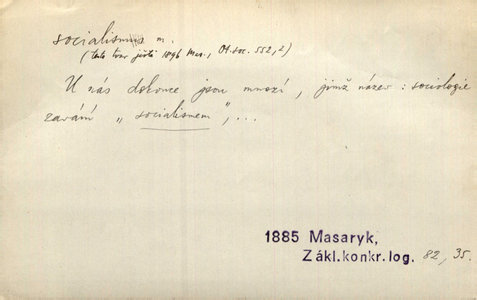 socialismus m.
(tento tvar ještě 1896 Mas., Ot. soc. 552, 2)
U nás dokonce jsou mnozí, jimž název: sociologie
zavání „socialismem", ...
1885 Masaryk,
Zákl.konkr.log. 82, 35.